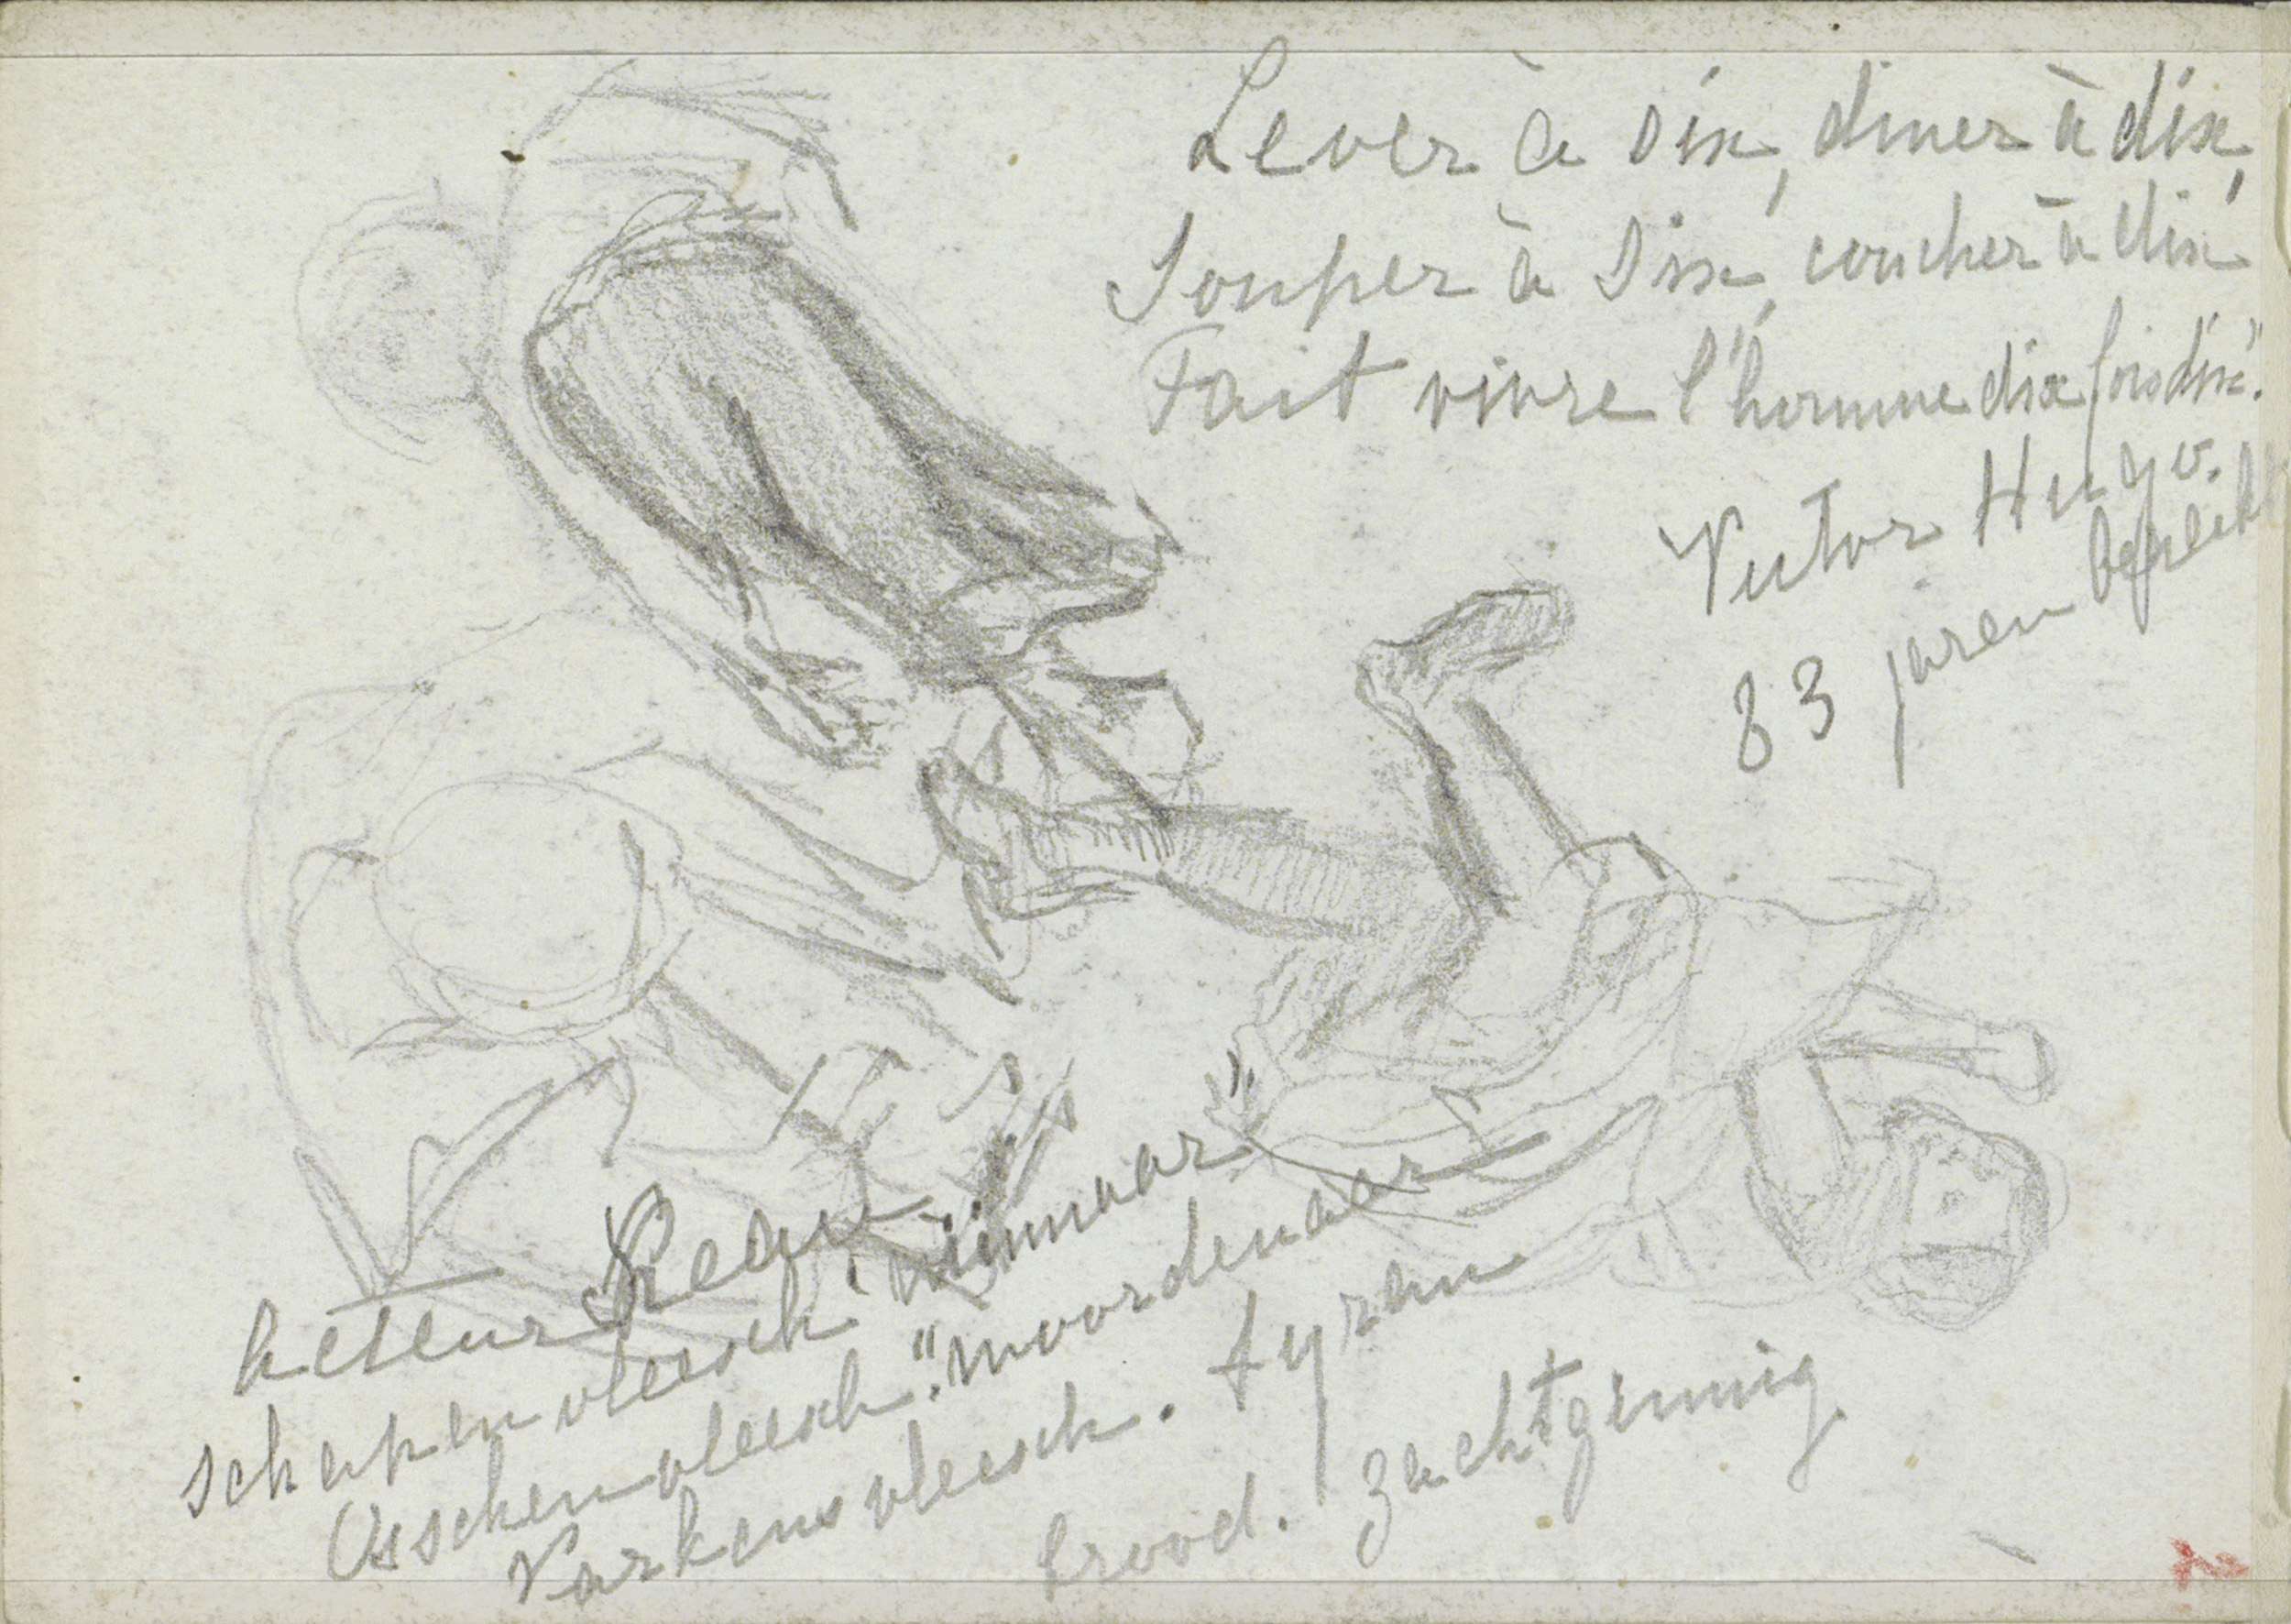 Lever à six, diner à dix,
Souper à six, coucher à dix
Fait vivre l'homme dix fois dix."
Victor Hugo.
83 jaren
acteur Kean
schapenvleesch "minnaar"
Osschenvleesch. "moordenaar
Varkensvleesch. tyran
brood. zachtzinnig